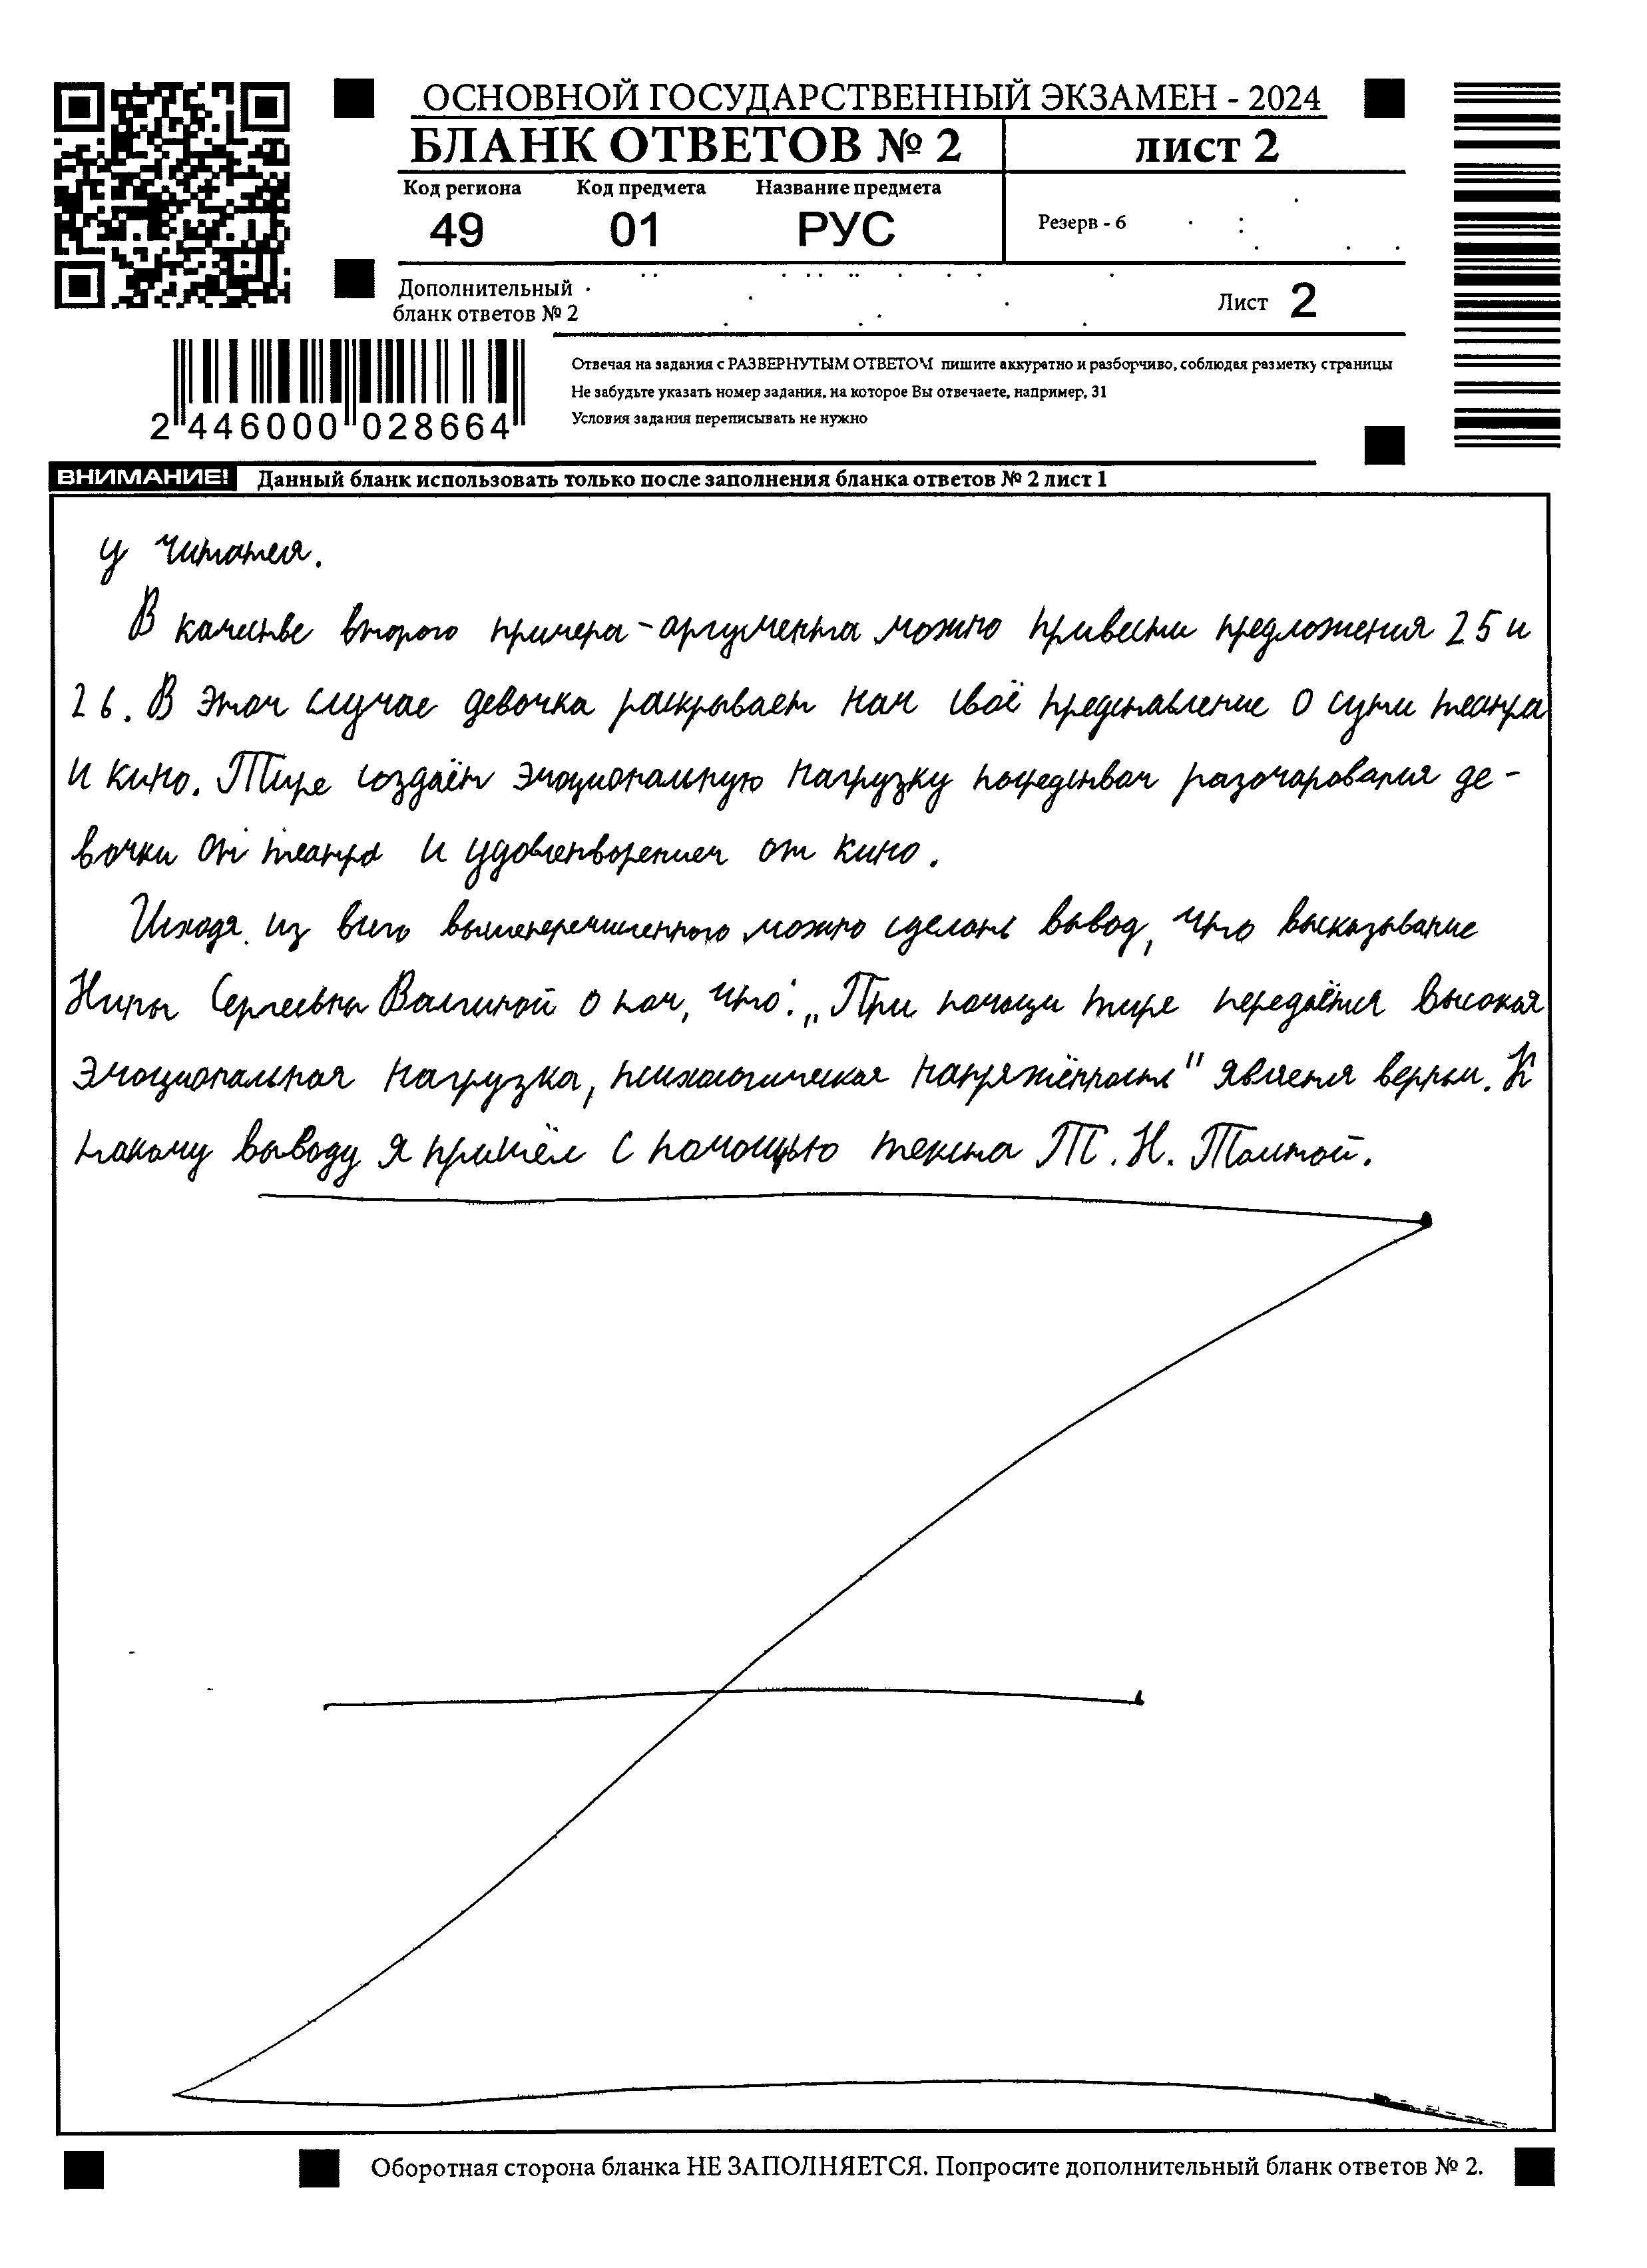 ОСНОВНОЙ ГОСУДАРСТВЕННЫЙ ЭКЗАМЕН - 2024
БЛАНК ОТВЕТОВ № 2
лист 2
Код региона Код предмета Название предмета
49 01 РУС
Резерв - 6
Дополнительный
бланк ответов № 2
Лист 2
2 446000 028664
Отвечая на задания с РАЗВЕРНУТЫМ ОТВЕТОМ пишите аккуратно и разборчиво, соблюдая разметку страницы
Не забудьте указать номер задания, на которое Вы отвечаете, например, 31
Условия задания переписывать не нужно
ВНИМАНИЕ! Данный бланк использовать только после заполнения бланка ответов № 2 лист 1
у читателя.
В качестве второго примера-аргумента можно привести предложения 25 и
26. В этом случае девочка раскрывает нам своё представление о сути театра
и кино. Тире создаёт эмоциональную нагрузку посредством разочарования де-
вочки от театра и удовлетворением от кино.
Исходя из всего вышеперечисленного можно сделать вывод, что высказывание
Нины Сергеевны Валгиной о том, что: „При помощи тире передаётся высокая
эмоциональная нагрузка, психологическая напряжённость" является верным. К
такому выводу я пришёл с помощью текста Т. Н. Толстой.
Оборотная сторона бланка НЕ ЗАПОЛНЯЕТСЯ. Попросите дополнительный бланк ответов № 2.